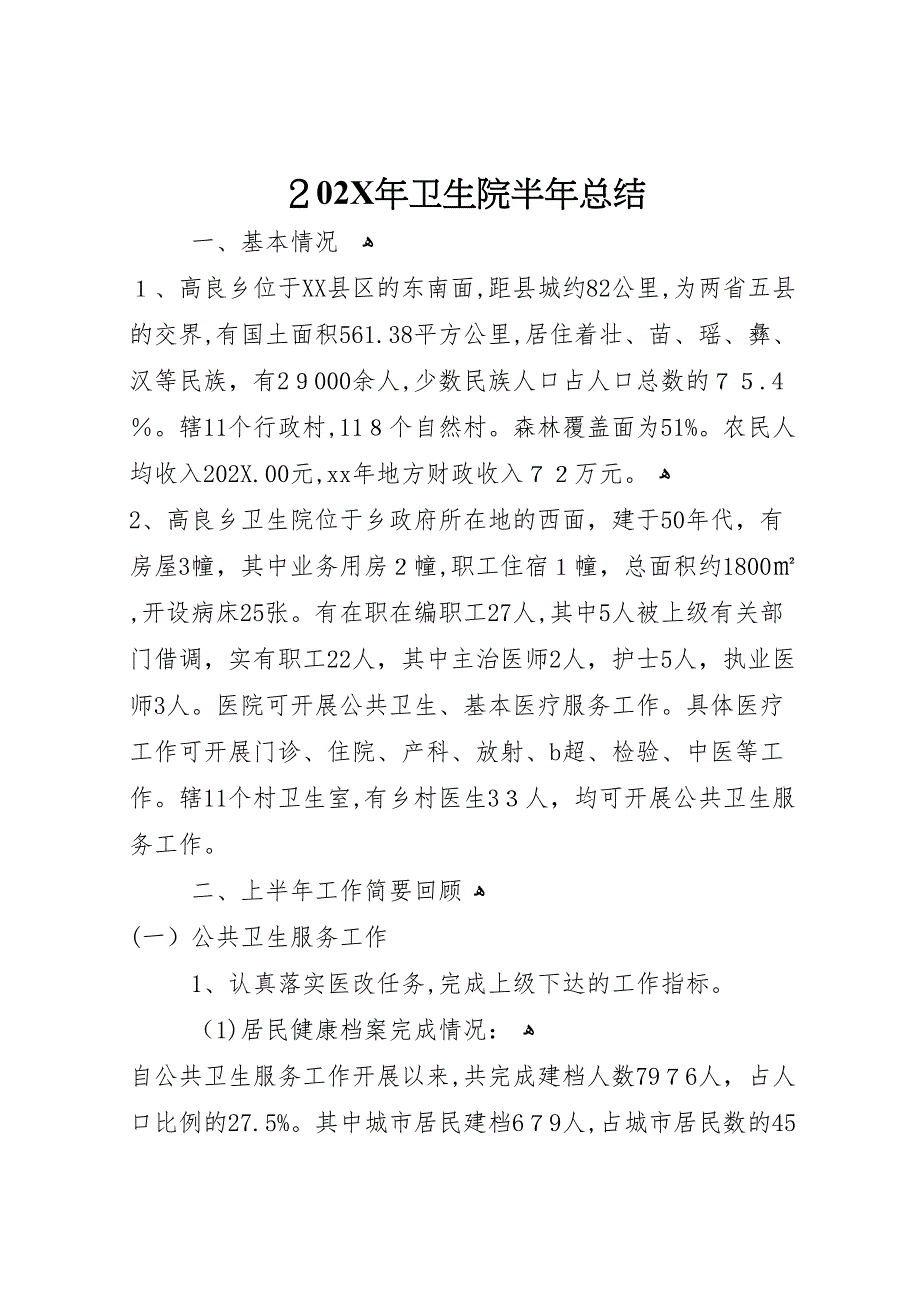 ２02X年卫生院半年总结
一、基本情况 ﻫ
１、高良乡位于XX县区的东南面,距县城约82公里,为两省五县
的交界,有国土面积561.38平方公里,居住着壮、苗、瑶、彝、
汉等民族，有2９000余人,少数民族人口占人口总数的７５.4
％。辖11个行政村,11８个自然村。森林覆盖面为51%。农民人
均收入202X.00元,xx年地方财政收入７２万元。 ﻫ
2、高良乡卫生院位于乡政府所在地的西面，建于50年代，有
房屋3幢，其中业务用房２幢,职工住宿１幢，总面积约1800㎡
,开设病床25张。有在职在编职工27人,其中5人被上级有关部
门借调，实有职工22人，其中主治医师2人，护士5人，执业医
师3人。医院可开展公共卫生、基本医疗服务工作。具体医疗
工作可开展门诊、住院、产科、放射、b超、检验、中医等工
作。辖11个村卫生室,有乡村医生3３人，均可开展公共卫生服
务工作。
二、上半年工作简要回顾 ﻫ
(一）公共卫生服务工作
1、认真落实医改任务,完成上级下达的工作指标。
（1)居民健康档案完成情况： ﻫ
自公共卫生服务工作开展以来,共完成建档人数79７6人，占人
口比例的27.5%。其中城市居民建档6７9人,占城市居民数的45